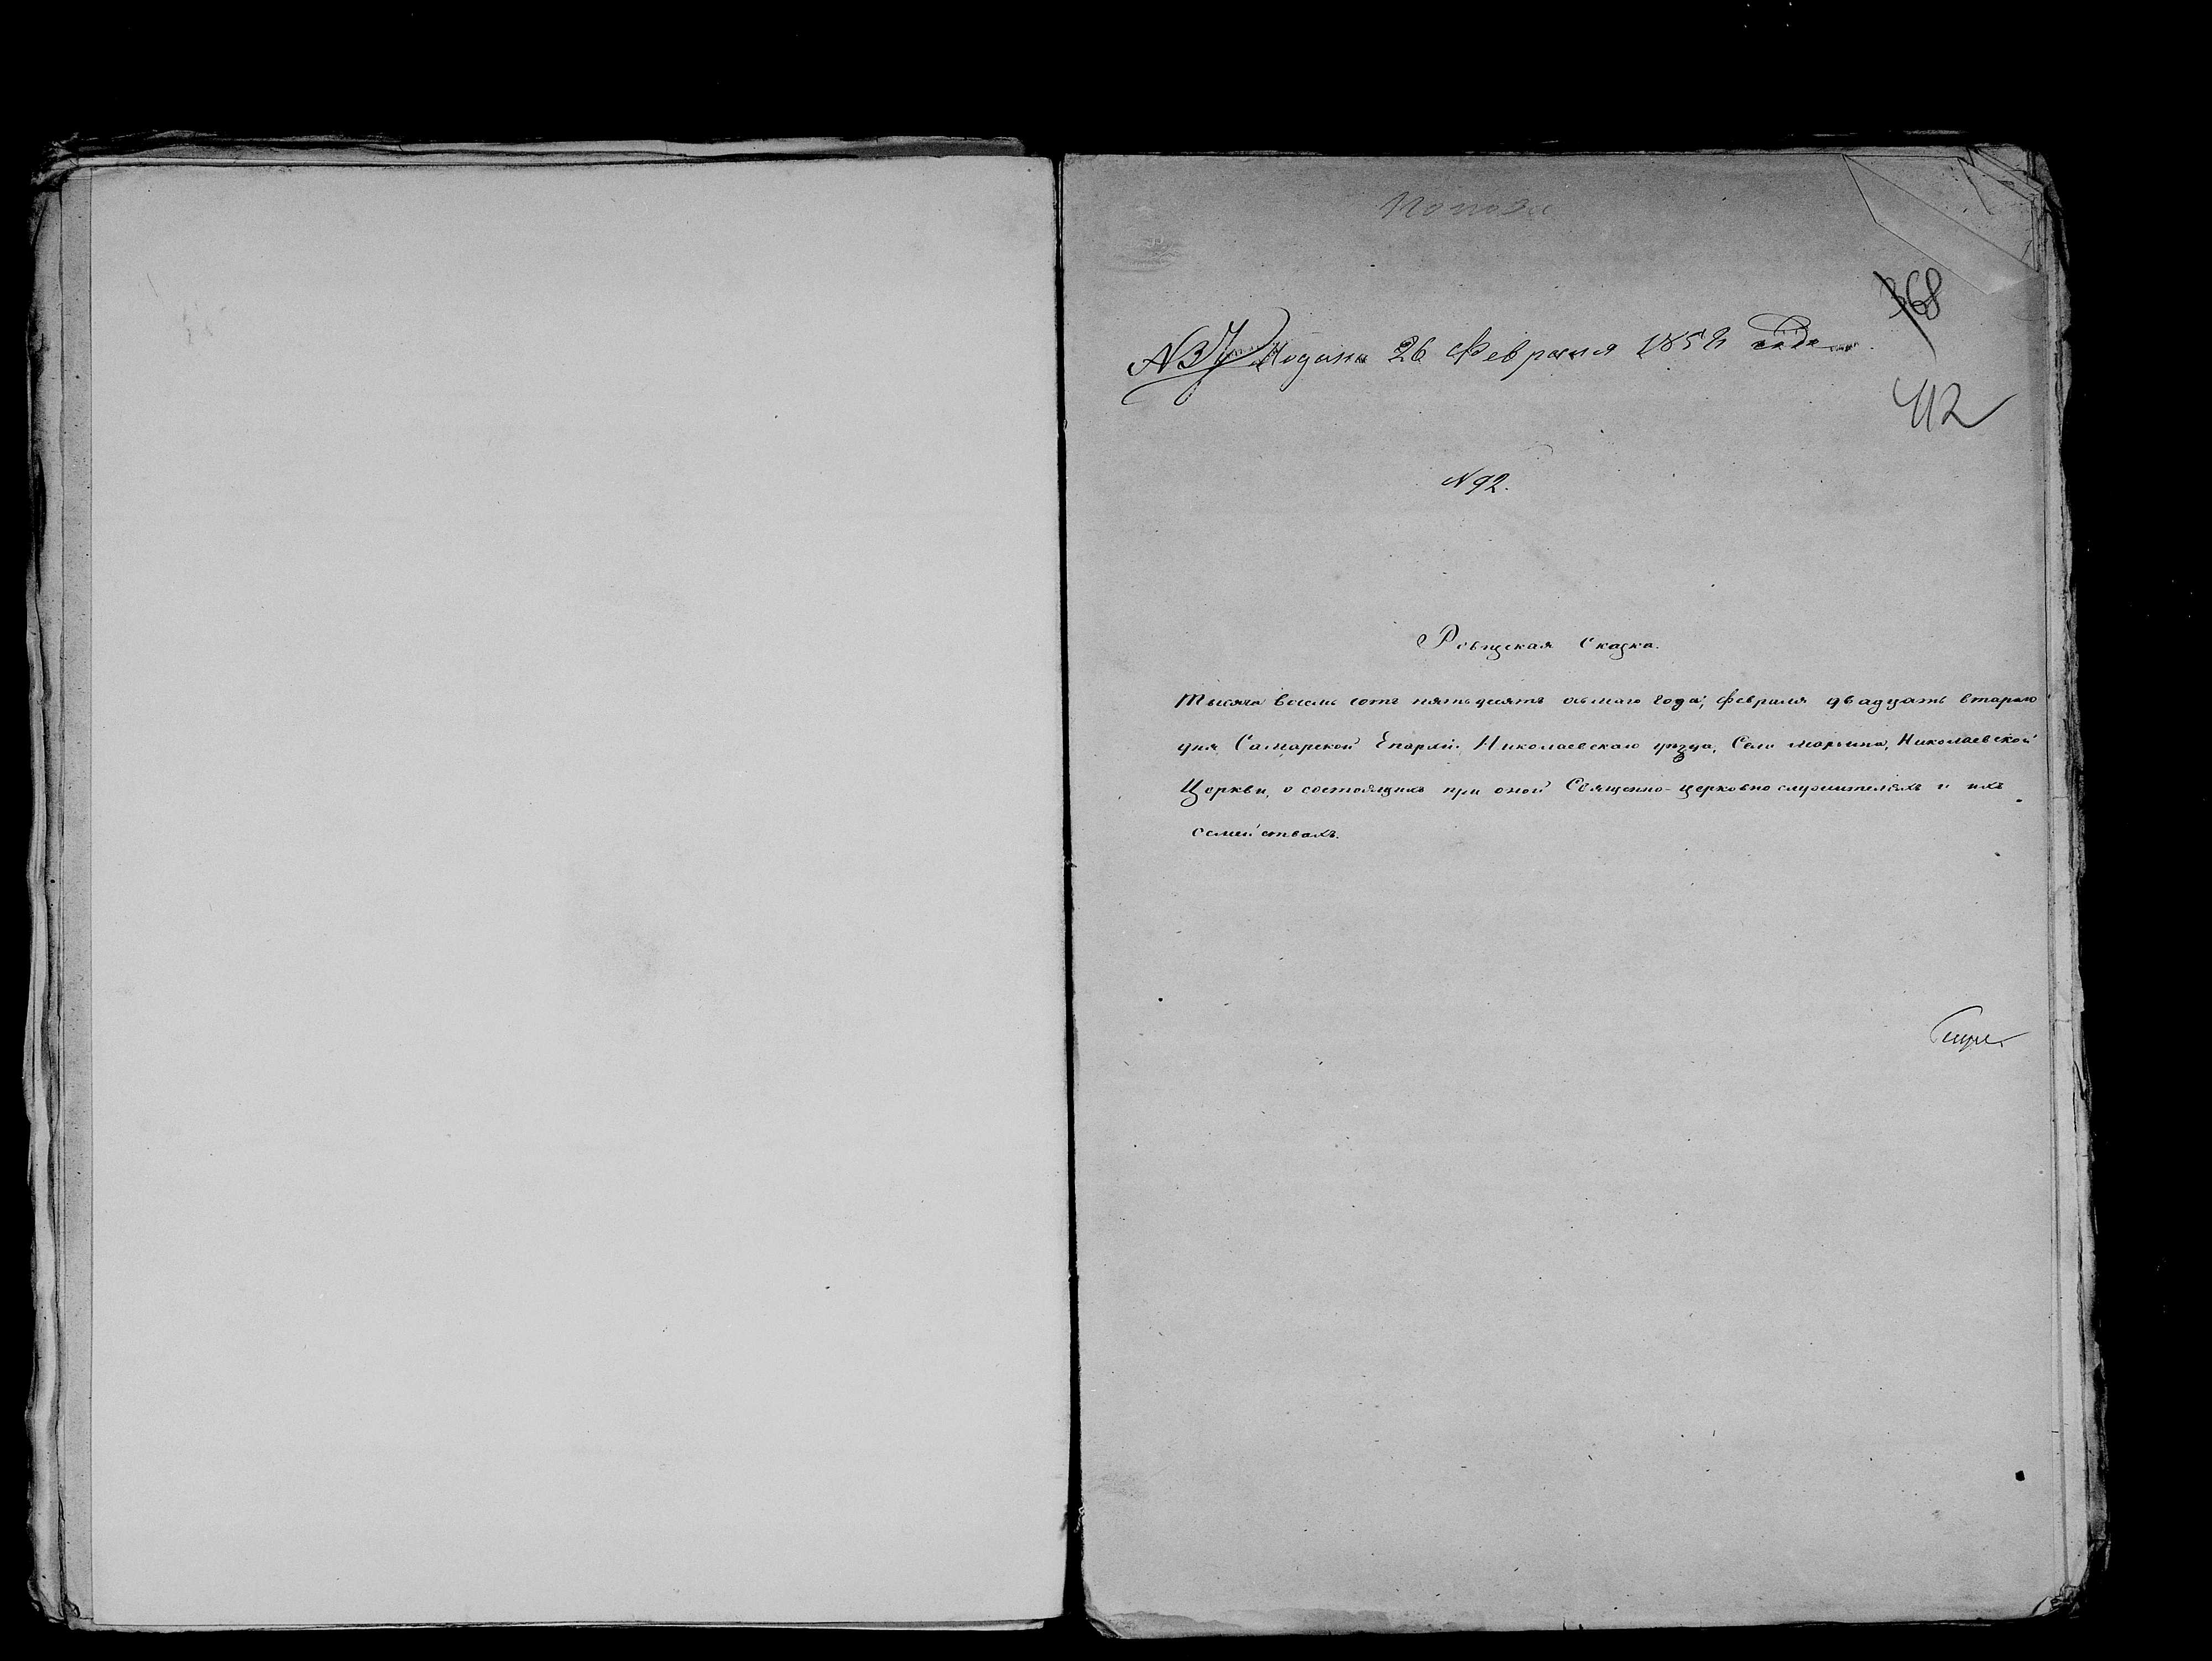 368
N 37 Подана 26 Февраля 1858 года
412
N 92.
Ревизская Сказка.
Тысяча восемь сотъ пятьдесятъ осьмаго года, февраля двадцать втораго
дня Самарской Епархіи Николаевскаго уѣзда, Села Марьина, Николаевской
Церкви, о состоящихъ при оной Священно-церковно служителяхъ и ихъ
семействахъ.